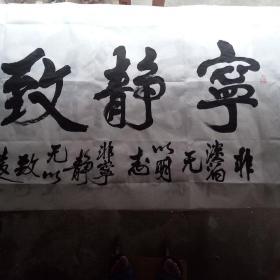 寧静致
非澹泊无以明志非寧静无以致遠